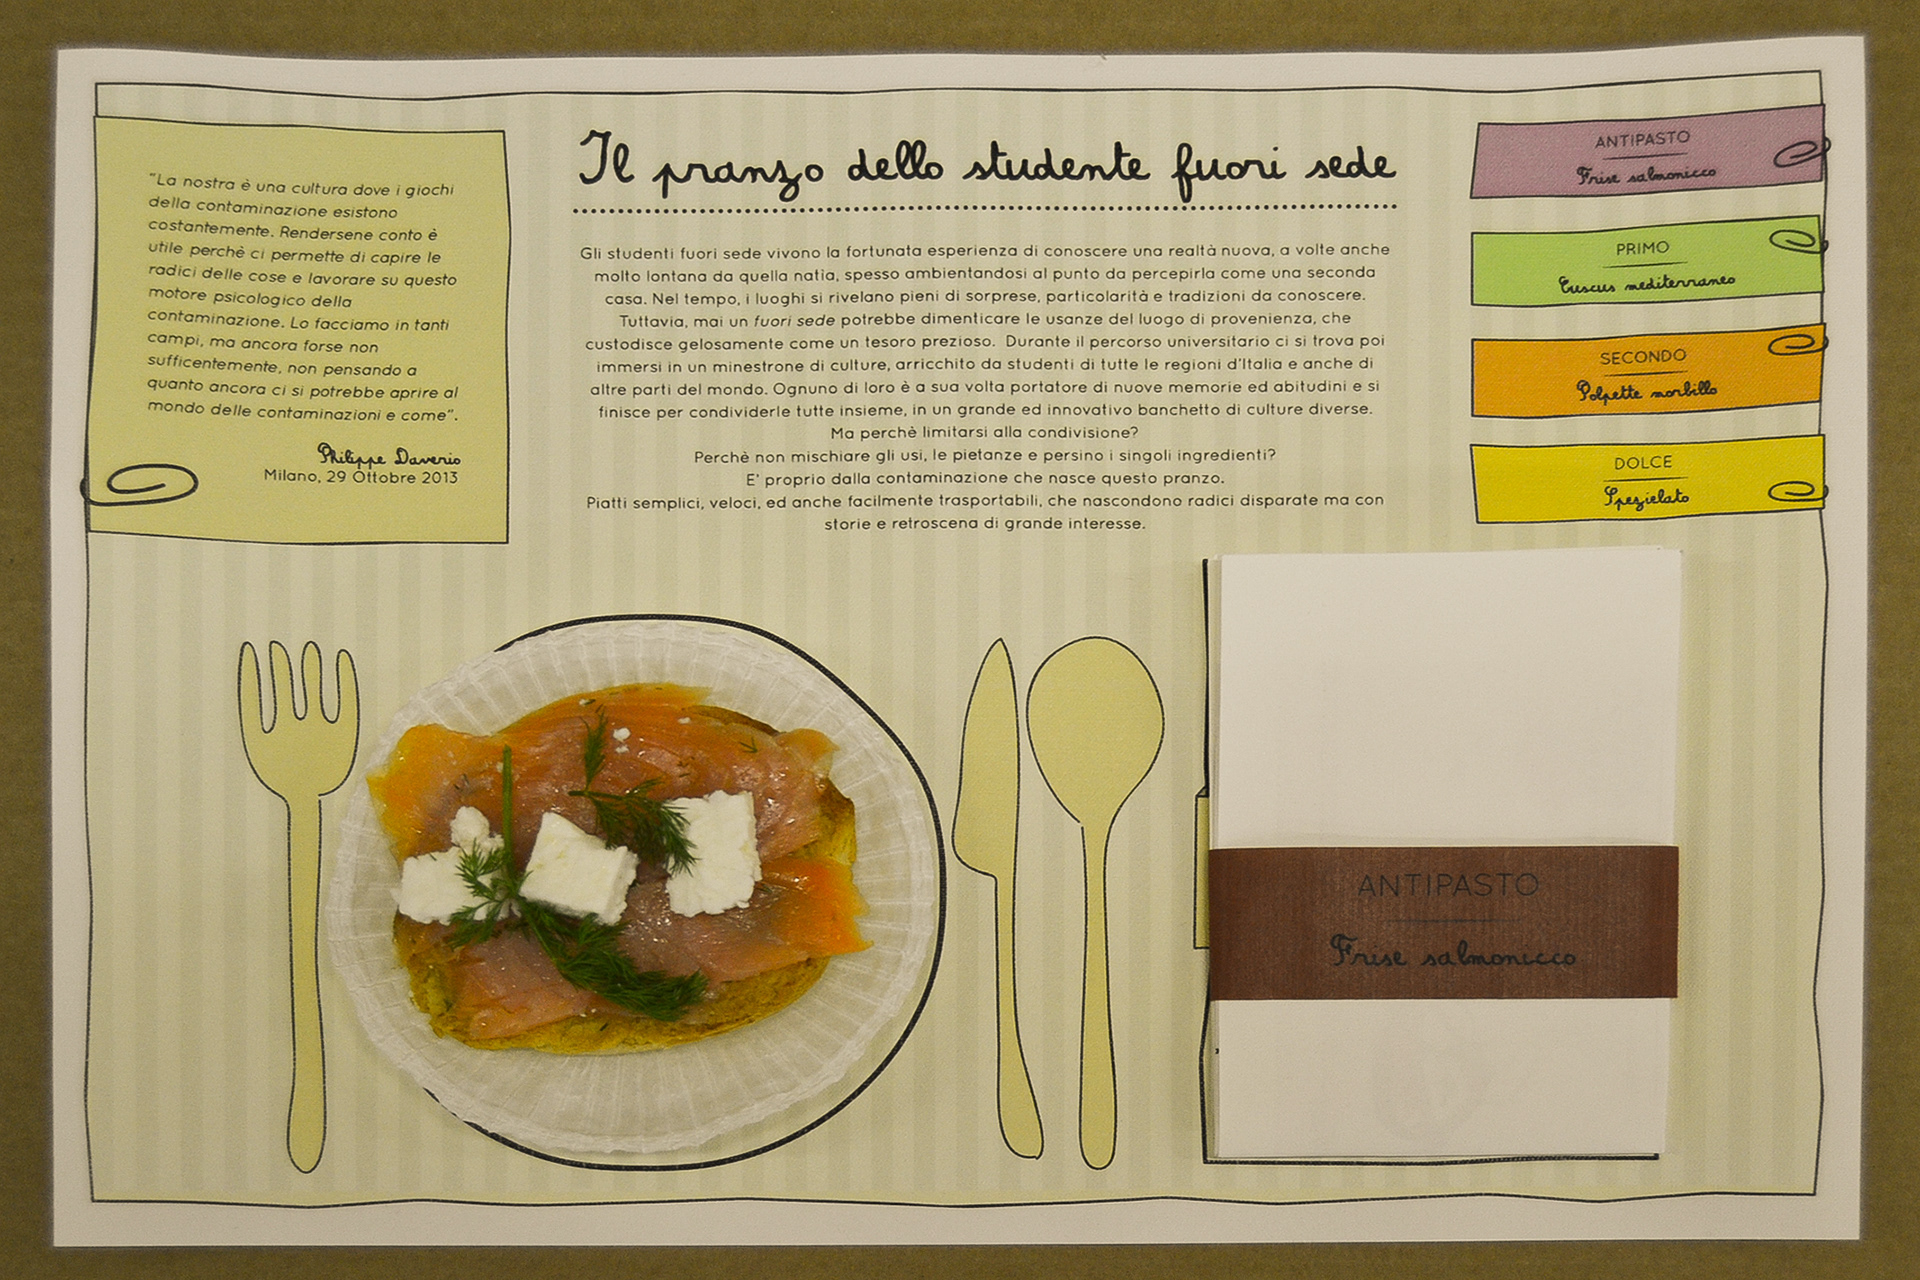 "La nostra è una cultura dove i giochi
della contaminazione esistono
costantemente. Rendersene conto è
utile perchè ci permette di capire le
radici delle cose e lavorare su questo
motore psicologico della
contaminazione. Lo facciamo in tanti
campi, ma ancora forse non
sufficentemente, non pensando a
quanto ancora ci si potrebbe aprire al
mondo delle contaminazioni e come".
Philippe Daverio
Milano, 29 Ottobre 2013
Il pranzo dello studente fuori sede
Gli studenti fuori sede vivono la fortunata esperienza di conoscere una realtà nuova, a volte anche
molto lontana da quella natia, spesso ambientandosi al punto da percepirla come una seconda
casa. Nel tempo, i luoghi si rivelano pieni di sorprese, particolarità e tradizioni da conoscere.
Tuttavia, mai un fuori sede potrebbe dimenticare le usanze del luogo di provenienza, che
custodisce gelosamente come un tesoro prezioso. Durante il percorso universitario ci si trova poi
immersi in un minestrone di culture, arricchito da studenti di tutte le regioni d'Italia e anche di
altre parti del mondo. Ognuno di loro è a sua volta portatore di nuove memorie ed abitudini e si
finisce per condividerle tutte insieme, in un grande ed innovativo banchetto di culture diverse.
Ma perchè limitarsi alla condivisione?
Perchè non mischiare gli usi, le pietanze e persino i singoli ingredienti?
E' proprio dalla contaminazione che nasce questo pranzo.
Piatti semplici, veloci, ed anche facilmente trasportabili, che nascondono radici disparate ma con
storie e retroscena di grande interesse.
ANTIPASTO
Frise salmonicco
PRIMO
Cuscus mediterraneo
SECONDO
Polpette morbillo
DOLCE
Spezielato
ANTIPASTO
Frise salmonicco